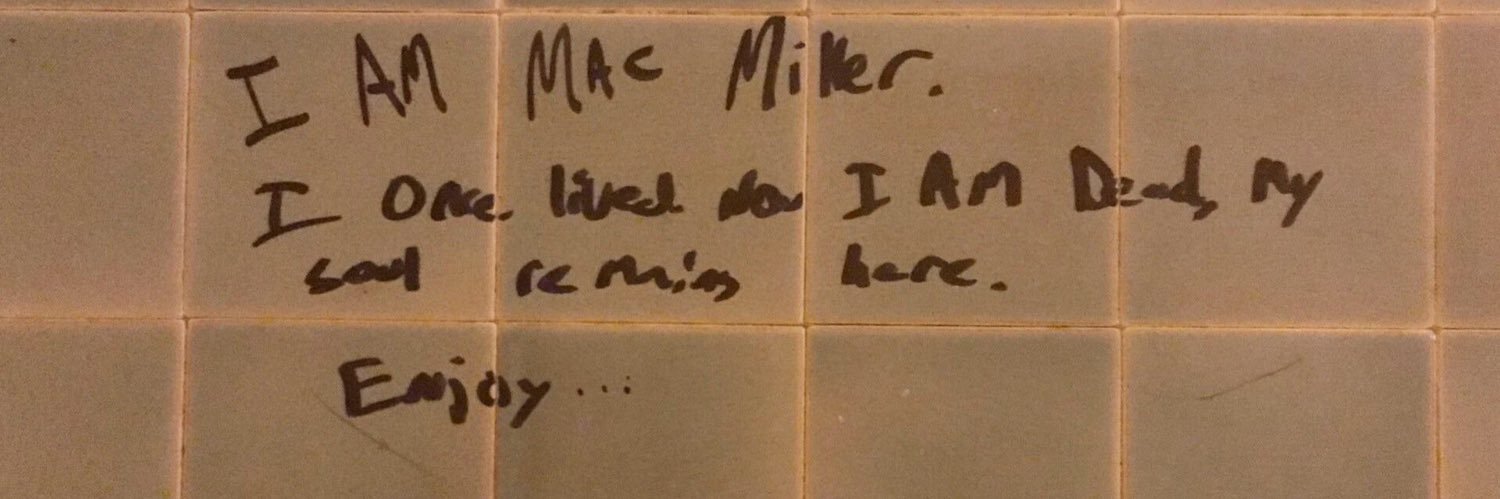 I AM MAC Miller.
I Once lived Now I AM Dead, My
soul remains here.
Enjoy...